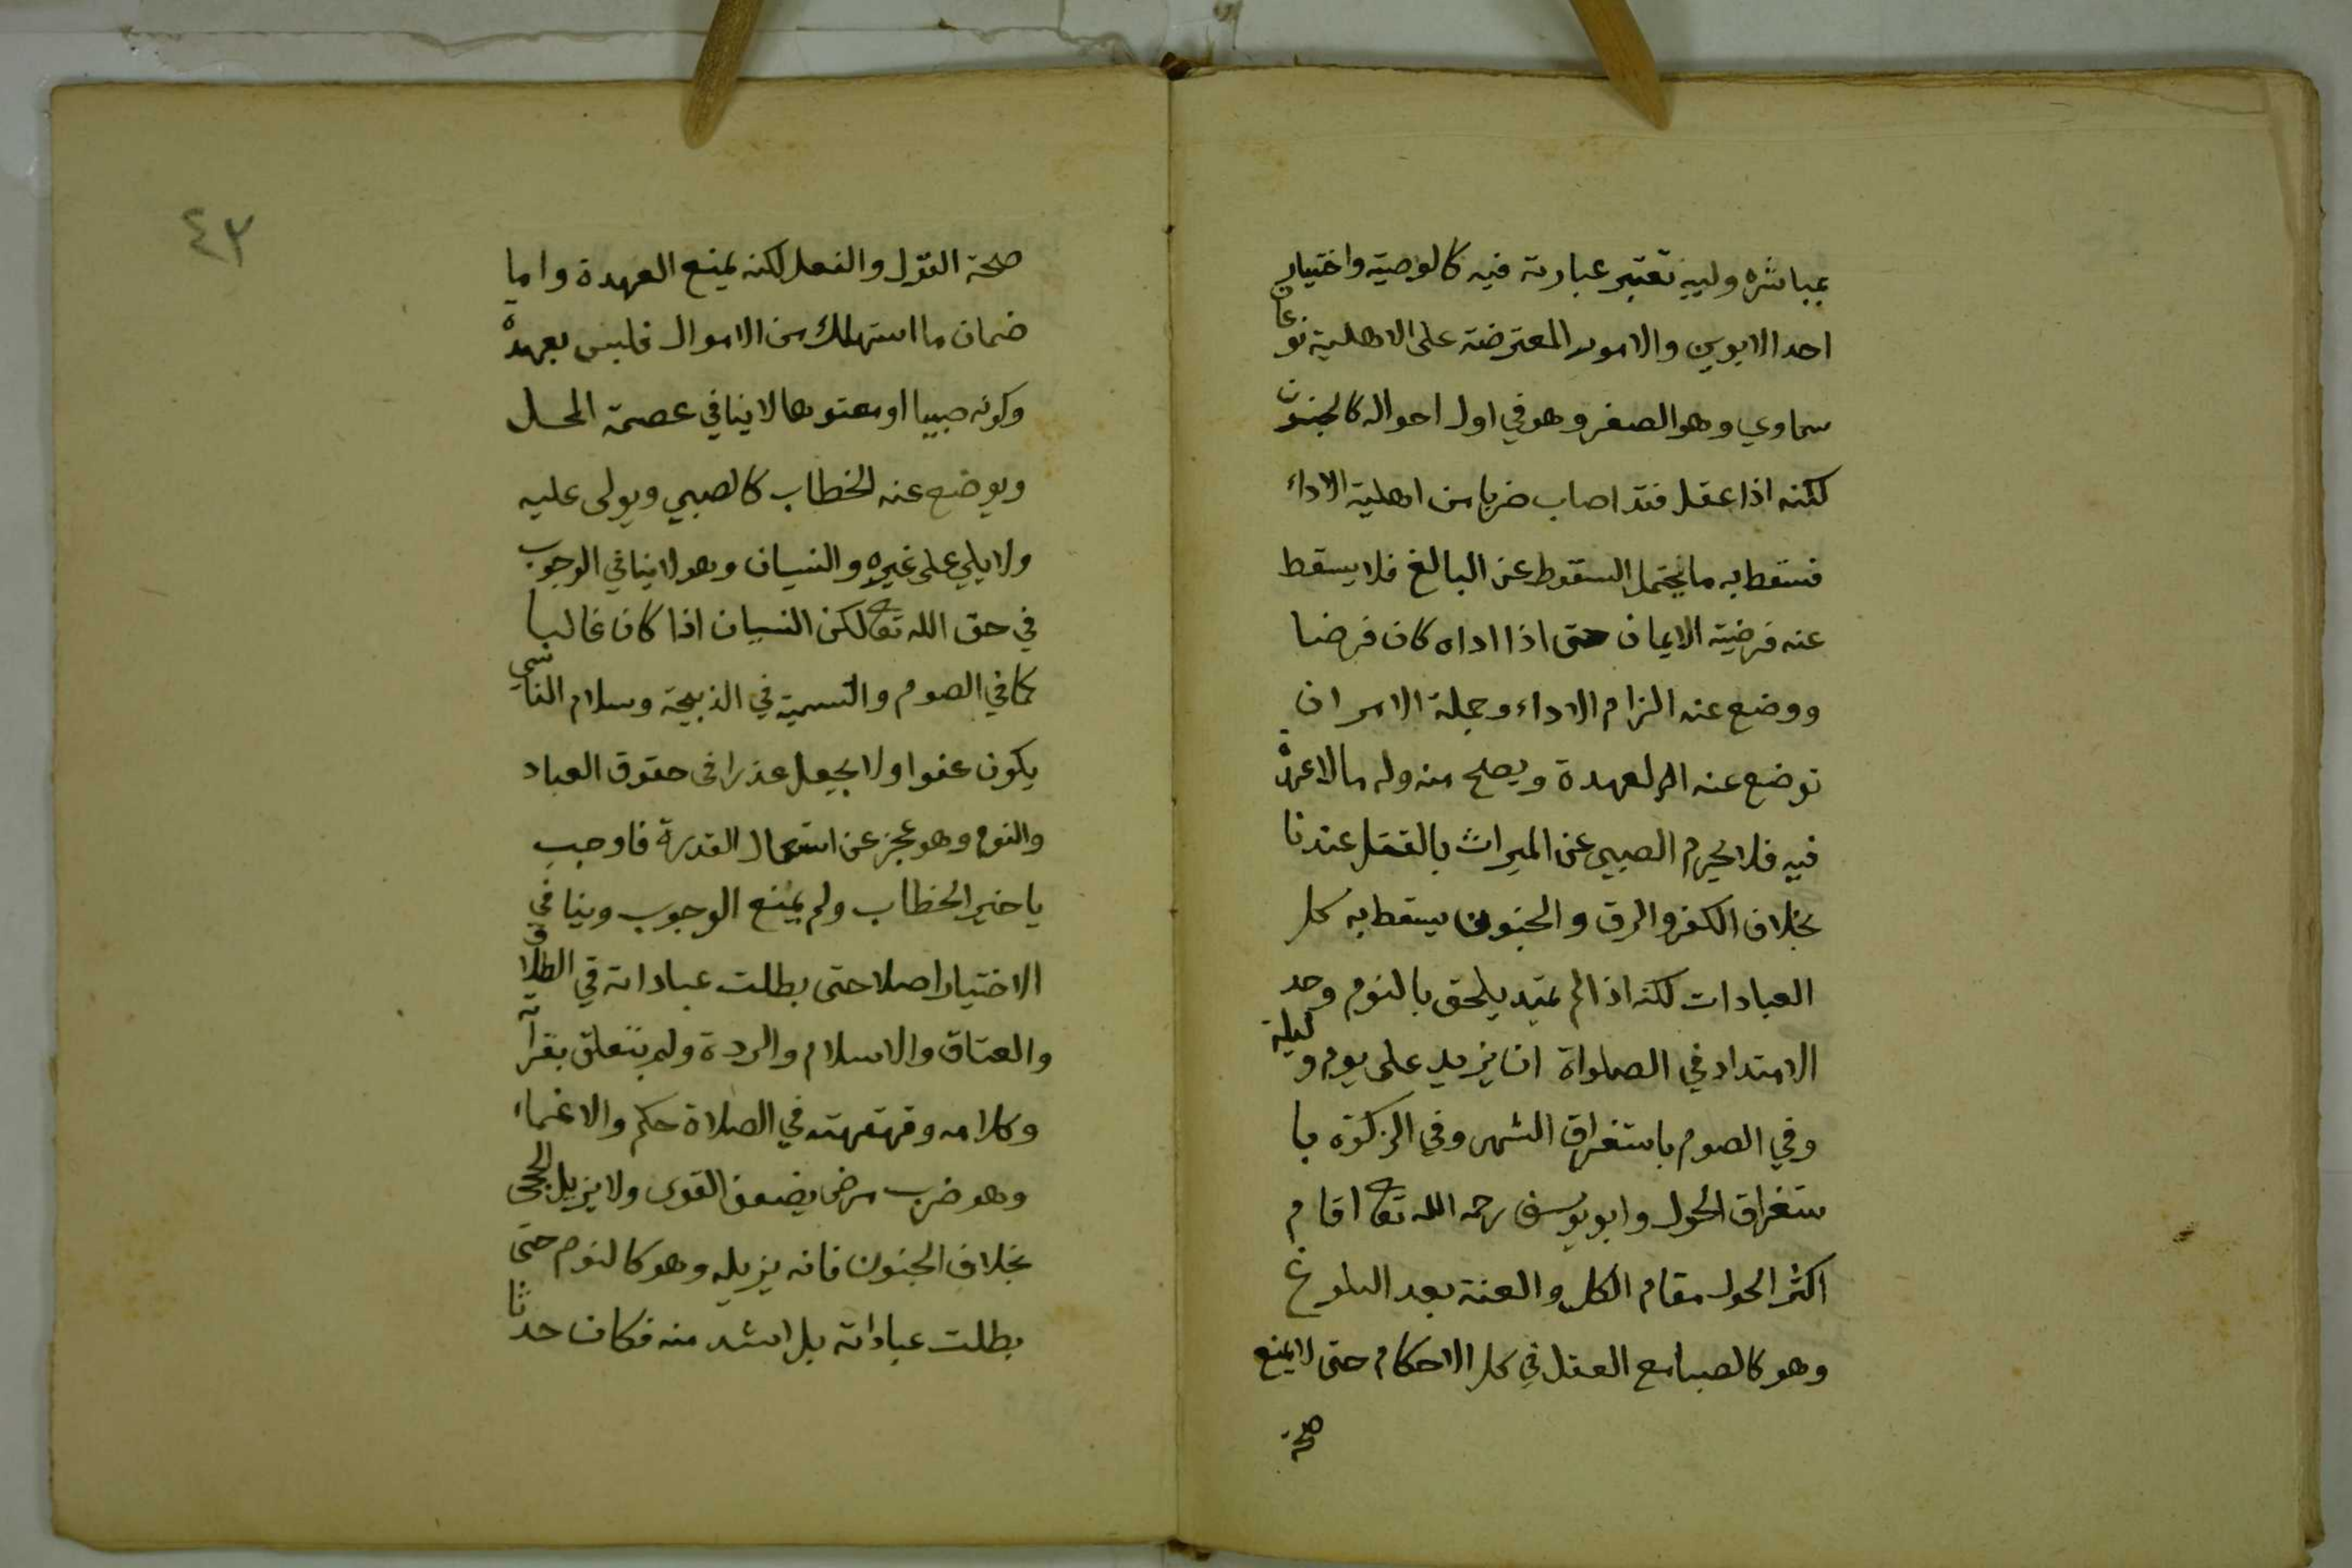 بمباشرة وليه تعتبر عبارته فيه كالوصية واختيار
احد الابوين والامور المعترضة على الاهلية نوعان
سماوي وهو الصغر وهو في اول احواله كالجنون
لكنه اذا عقل فقد اصاب ضربا من اهلية الاداء
فسقط به ما يحتمل السقوط عن البالغ فلا يسقط
عنه فرضية الايمان حتى اذا اداه كان فرضا
ووضع عنه الزام الاداء وجملة الامر ان
توضع عنه العهدة ويصح منه وله ما لا عهدة
فيه فلا يحرم الصبي عن الميراث بالقتل عندنا
بخلاف الكفر والرق والجنون يسقط به كل
العبادات لكنه اذا لم يمتد يلحق بالنوم وحد
الامتداد في الصلواة ان يزيد على يوم وليلة
وفي الصوم باستغراق الشهر وفي الزكوة با
ستغراق الحول وابو يوسف رحمه الله تع اقام
اكثر الحول مقام الكل والعته بعد البلوغ
وهو كالصبا مع العقل في كل الاحكام حتى لا يمنع
صحة
٤٣
صحة القول والفعل لكنه يمنع العهدة واما
ضمان ما استهلك من الاموال فليس بعهدة
وكونه صبيا او معتوها لا ينافي عصمة المحل
ويوضع عنه الخطاب كالصبي ويولى عليه
ولا يلي على غيره والنسيان وهو لا ينافي الوجوب
في حق الله تع لكن النسيان اذا كان غالبا
كما في الصوم والتسمية في الذبيحة وسلام الناسي
يكون عفوا ولا يجعل عذرا في حقوق العباد
والنوم وهو عجز عن استعمال القدرة فاوجب
ياخير الخطاب ولم يمنع الوجوب وينافي
الاختيار اصلا حتى بطلت عباداته في الطلاق
والعتاق والاسلام والردة ولم يتعلق بقرآته
وكلامه وقهقهته في الصلاة حكم والاغماء
وهو ضرب مرض يضعف القوى ولا يزيل الحجى
بخلاف الجنون فانه يزيله وهو كالنوم حتى
بطلت عباداته بل اشد منه فكان حدثا